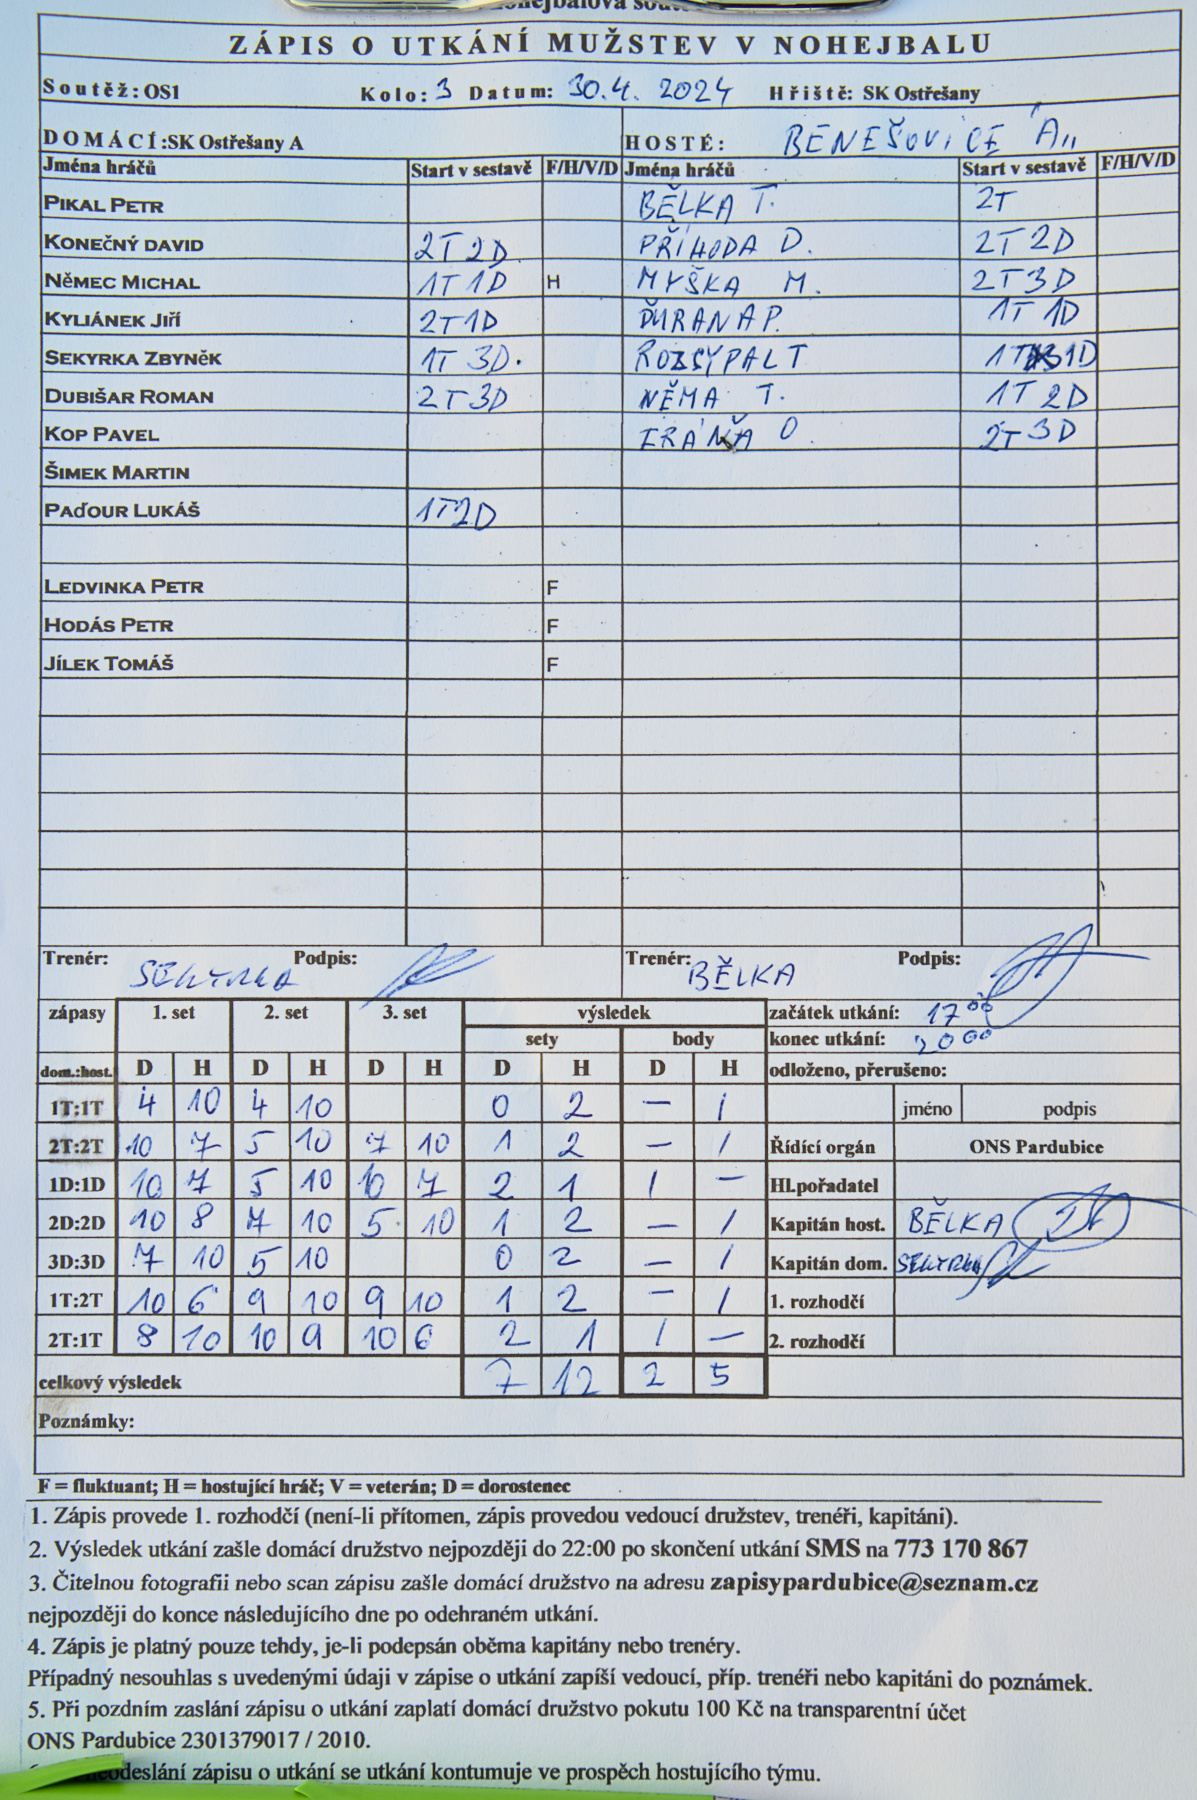 ZÁPIS O UTKÁNÍ MUŽSTEV V NOHEJBALU
Soutěž: OS1 Kolo: 3 Datum: 30.4. 2024 Hřiště: SK Ostřešany
DOMÁCÍ: SK Ostřešany A HOSTÉ: BENEŠOVICE "A"
Jména hráčů Start v sestavě F/H/V/D Jména hráčů Start v sestavě F/H/V/D
PIKAL PETR BĚLKA T. 2T
KONEČNÝ DAVID 2T 2D PŘÍHODA D. 2T 2D
NĚMEC MICHAL 1T 1D H MYŠKA M. 2T 3D
KYLIÁNEK JIŘÍ 2T 1D ĎURANA P. 1T 1D
SEKYRKA ZBYNĚK 1T 3D. ROZSYPAL T 1T 1D
DUBIŠAR ROMAN 2T 3D NĚMA T. 1T 2D
KOP PAVEL 2T 3D
ŠIMEK MARTIN
PAĎOUR LUKÁŠ 1T 2D
LEDVINKA PETR F
HODÁS PETR F
JÍLEK TOMÁŠ F
Trenér: SEKYRKA Podpis: Trenér: BĚLKA Podpis:
zápasy 1. set 2. set 3. set výsledek začátek utkání: 17 00
sety body konec utkání: 20 00
dom.:host. D H D H D H D H D H odloženo, přerušeno:
1T:1T 4 10 4 10 0 2 – 1 jméno podpis
2T:2T 10 7 5 10 7 10 1 2 – 1 Řídící orgán ONS Pardubice
1D:1D 10 7 5 10 10 7 2 1 1 – Hl.pořadatel
2D:2D 10 8 7 10 5 10 1 2 – 1 Kapitán host. BĚLKA
3D:3D 7 10 5 10 0 2 – 1 Kapitán dom. SEKYRKA
1T:2T 10 6 9 10 9 10 1 2 – 1 1. rozhodčí
2T:1T 8 10 10 9 10 6 2 1 1 – 2. rozhodčí
celkový výsledek 7 12 2 5
Poznámky:
F = fluktuant; H = hostující hráč; V = veterán; D = dorostenec
1. Zápis provede 1. rozhodčí (není-li přítomen, zápis provedou vedoucí družstev, trenéři, kapitáni).
2. Výsledek utkání zašle domácí družstvo nejpozději do 22:00 po skončení utkání SMS na 773 170 867
3. Čitelnou fotografii nebo scan zápisu zašle domácí družstvo na adresu zapisypardubice@seznam.cz
nejpozději do konce následujícího dne po odehraném utkání.
4. Zápis je platný pouze tehdy, je-li podepsán oběma kapitány nebo trenéry.
Případný nesouhlas s uvedenými údaji v zápise o utkání zapíší vedoucí, příp. trenéři nebo kapitáni do poznámek.
5. Při pozdním zaslání zápisu o utkání zaplatí domácí družstvo pokutu 100 Kč na transparentní účet
ONS Pardubice 2301379017 / 2010.
zápisu o utkání se utkání kontumuje ve prospěch hostujícího týmu.